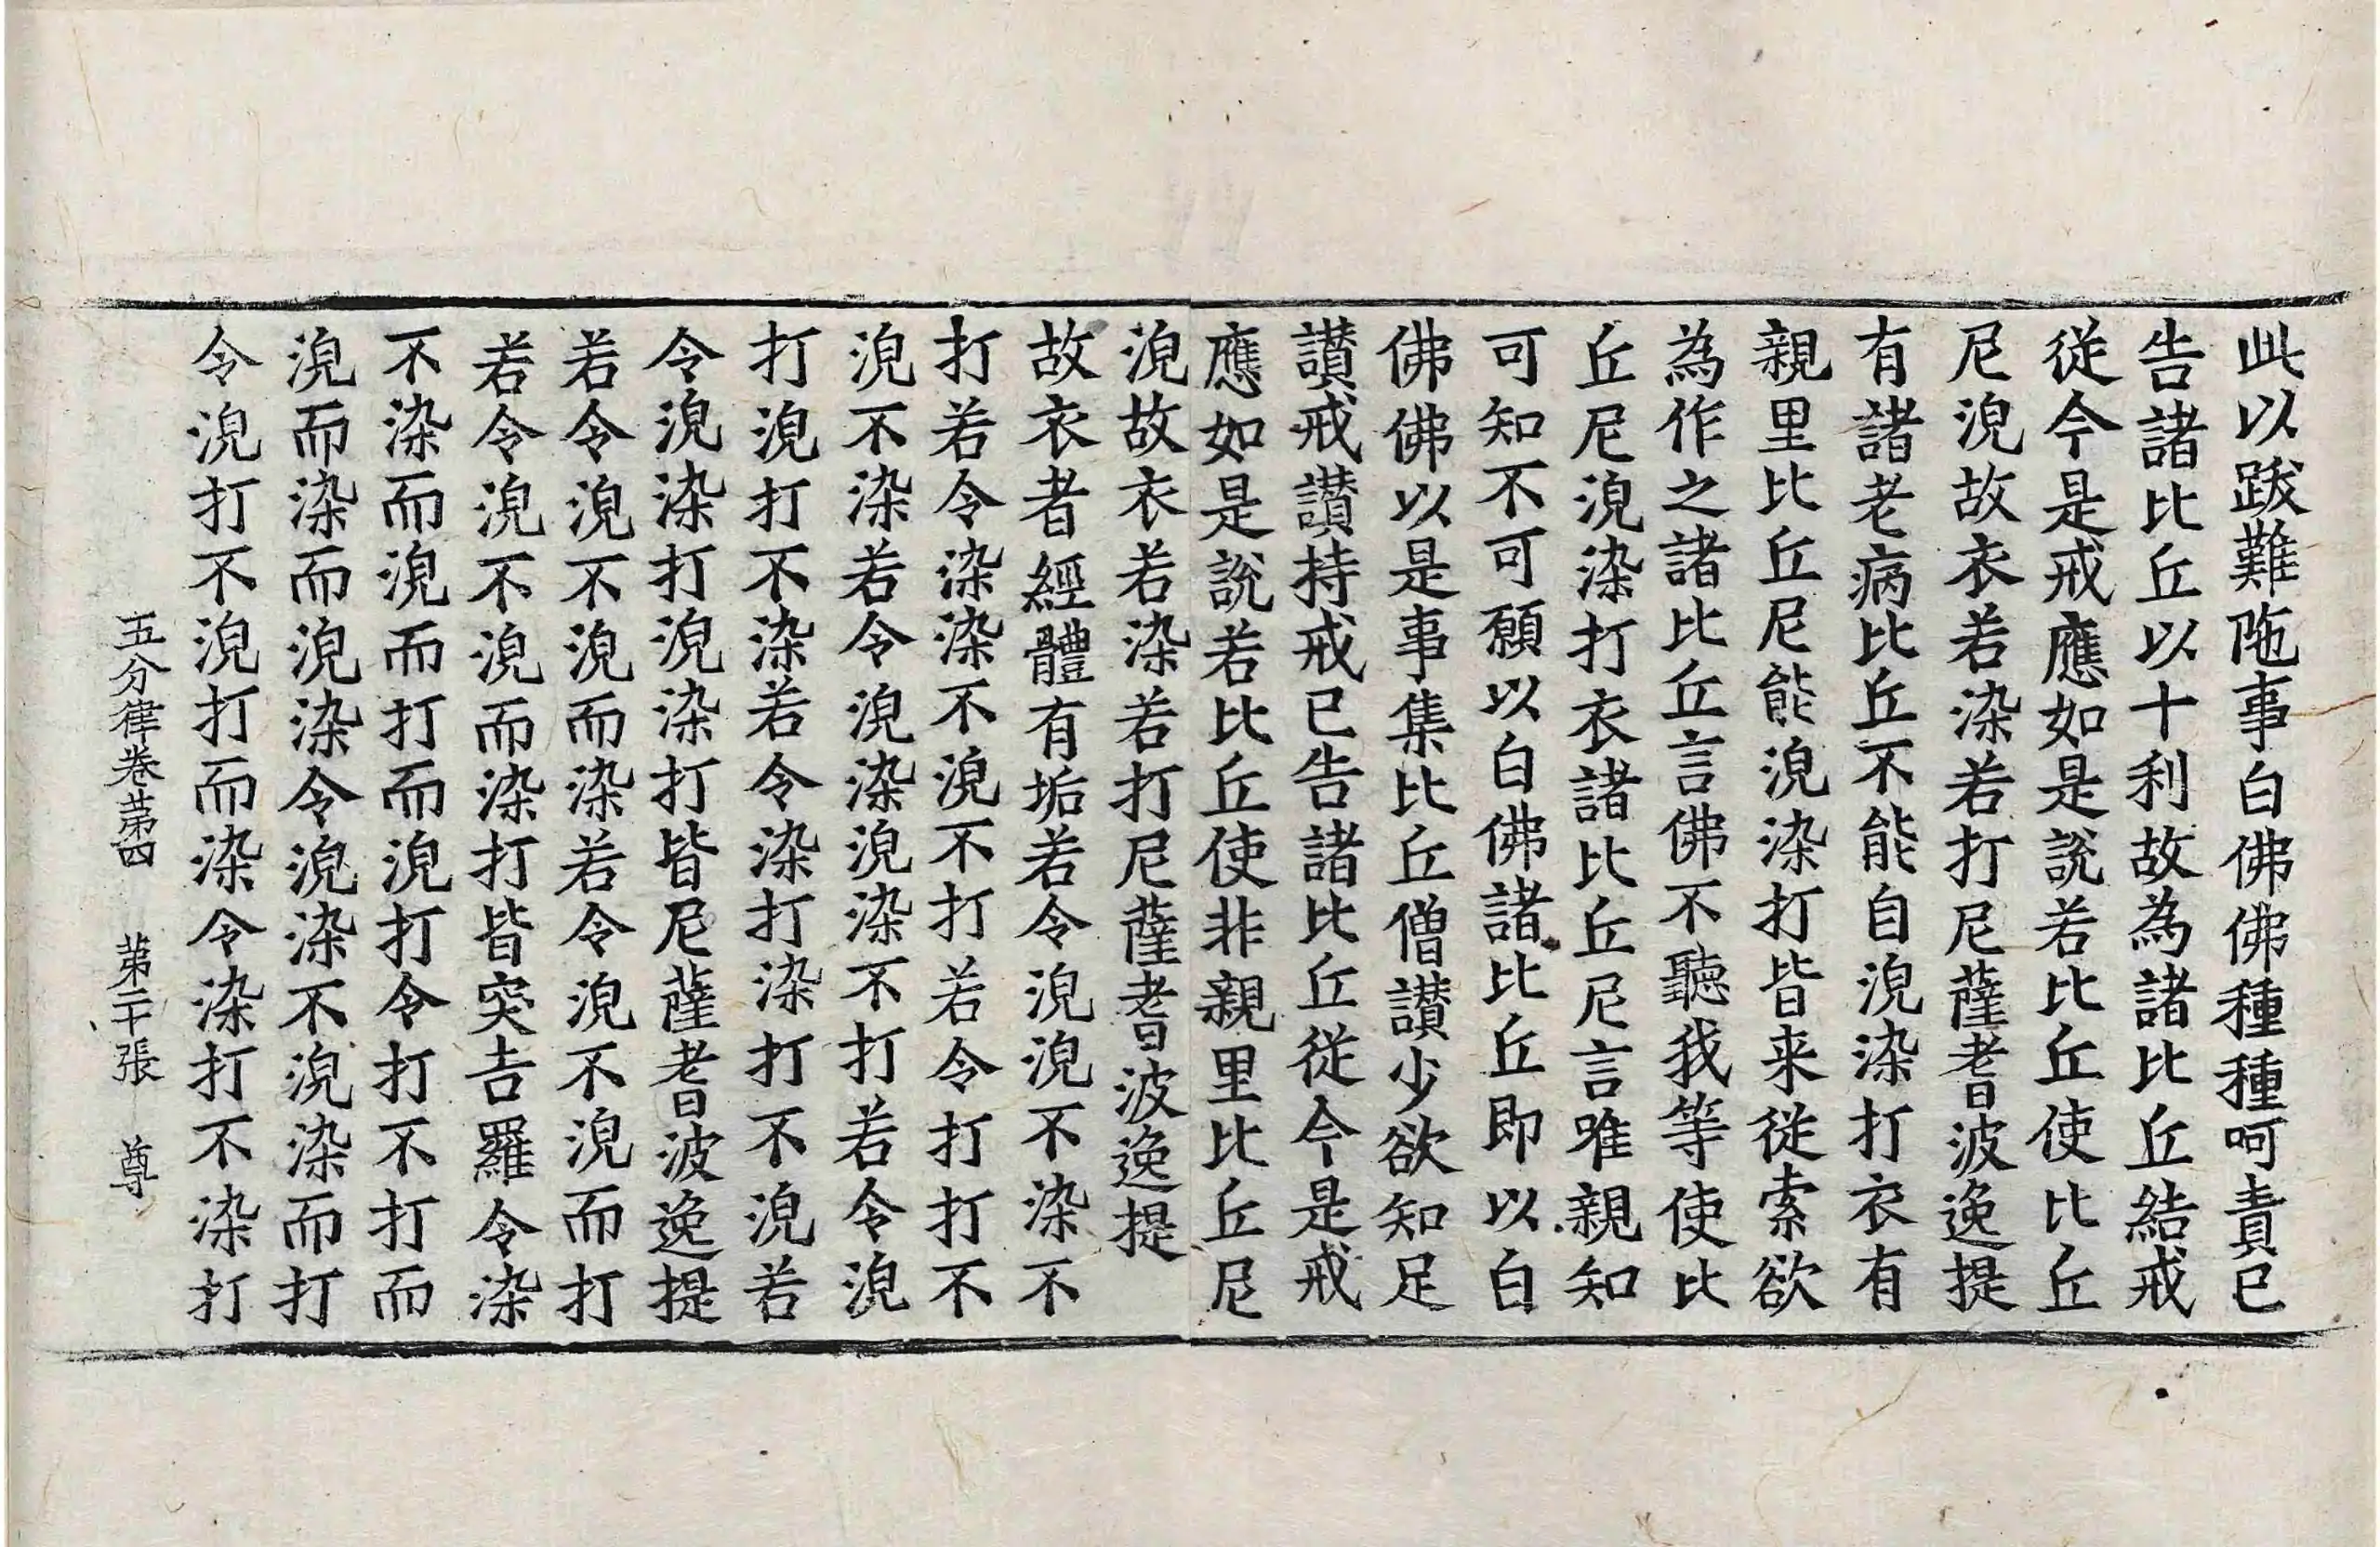 此以跋難陁事白佛佛種種呵責已
告諸比丘以十利故為諸比丘結戒
從今是戒應如是說若比丘使比丘
尼浣故衣若染若打尼薩耆波逸提
有諸老病比丘不能自浣染打衣有
親里比丘尼能浣染打皆来從索欲
為作之諸比丘言佛不聽我等使比
丘尼浣染打衣諸比丘尼言唯親知
可知不可願以白佛諸比丘即以白
佛佛以是事集比丘僧讃少欲知足
讃戒讃持戒已告諸比丘從今是戒
應如是說若比丘使非親里比丘尼
浣故衣若染若打尼薩耆波逸提
故衣者經體有垢若令浣浣不染不
打若令染染不浣不打若令打打不
浣不染若令浣染浣染不打若令浣
打浣打不染若令染打染打不浣若
令浣染打浣染打皆尼薩耆波逸提
若令浣不浣而染若令浣不浣而打
若令浣不浣而染打皆突吉羅令染
不染而浣而打而浣打令打不打而
浣而染而浣染令浣染不浣染而打
令浣打不浣打而染令染打不染打
五分律卷苐四 苐二十張 尊